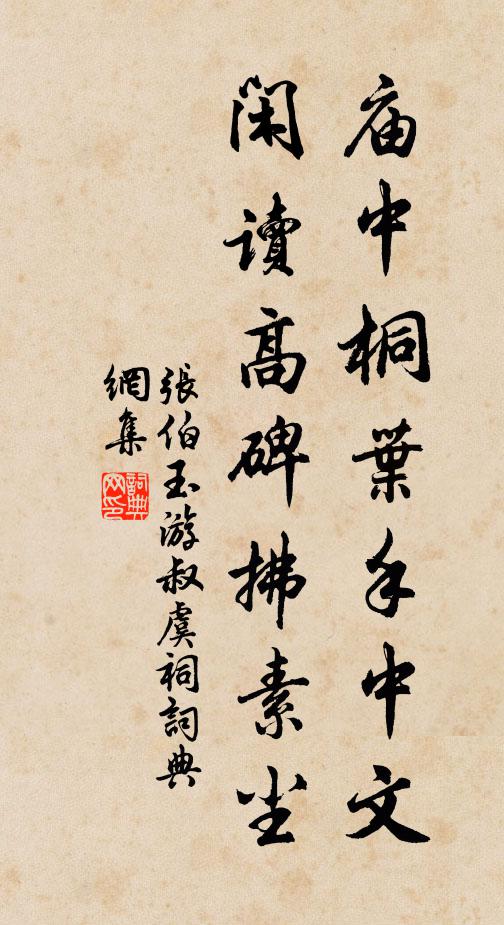 庙中桐葉手中文
閑讀高碑拂素尘
張伯玉游叔虞祠詞典
網集
詞典
网印